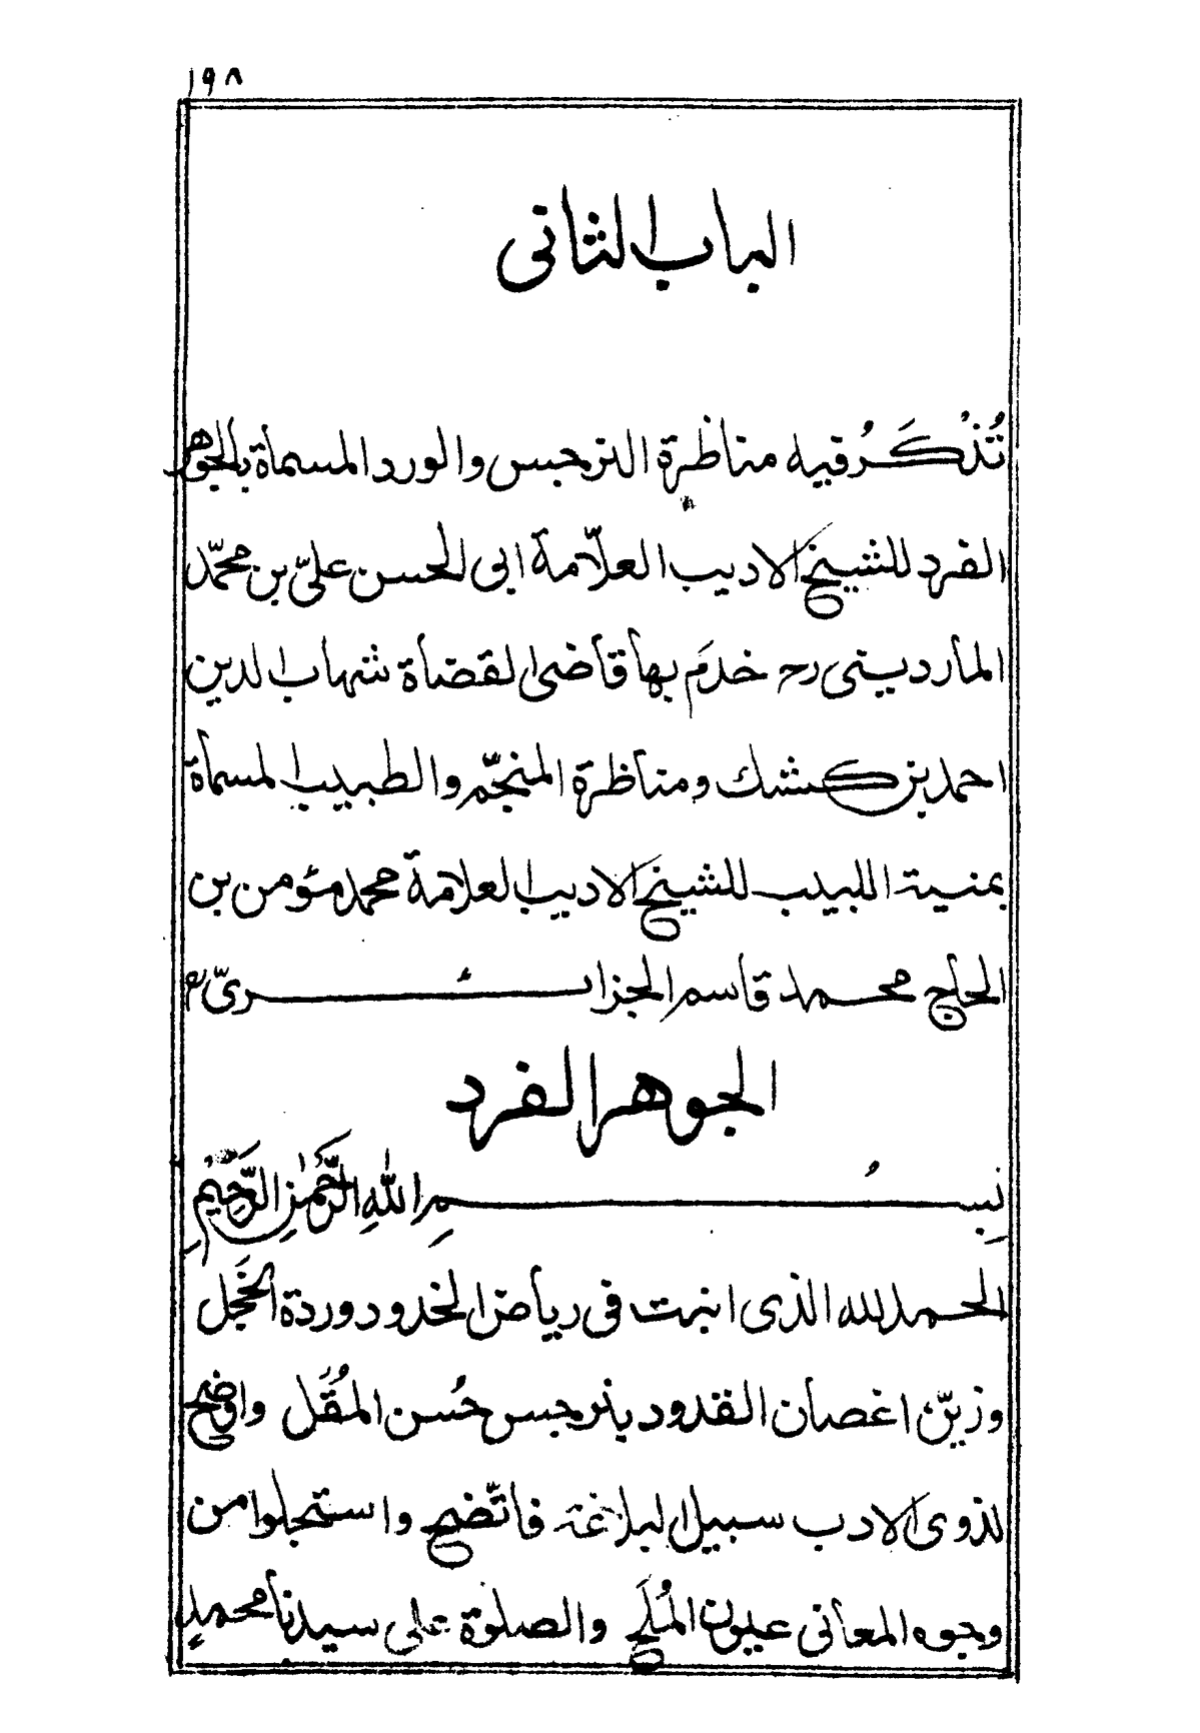 ١٩٨
الباب الثانى
تُذْكَرُ فيه مناظرة النرجس والورد المسماة بالجوهر
الفرد للشيخ الاديب العلّامة ابى الحسن علىّ بن محمّد
الماردينى رح خدمَ بها قاضى القضاة شهاب الدين
احمد بن كشك ومناظرة المنجّم والطبيب المسماة
بمنية اللبيب للشيخ الاديب العلامة محمد مؤمن بن
الحاج محمد قاسم الجزائرىّ رح
الجوهر الفرد
بِسْمِ اللهِ الرَّحْمٰنِ الرَّحِيْمِ
الحمد لله الذى انبت فى رياض الخدود وردة الخَجَل
وزيّن اغصان القدود بنرجس حُسن المُقَل واوضح
لذوى الادب سبيل البلاغة فاتّضح واستجلوا من
وجوه المعانى عيون المُلَح والصلوة على سيدنا محمدٍ